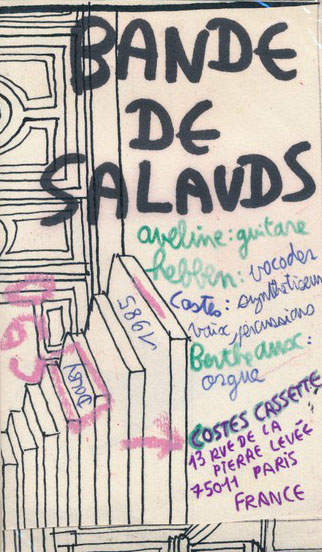 BANDE
DE
SALAUDS
aveline: guitare
hebben: vocoder
Costes: synthétiseur
voix, percussions
Bertheaux:
orgue
1985
COSTES CASSETTE
13 RUE DE LA
PIERRE LEVÉE
75011 PARIS
FRANCE